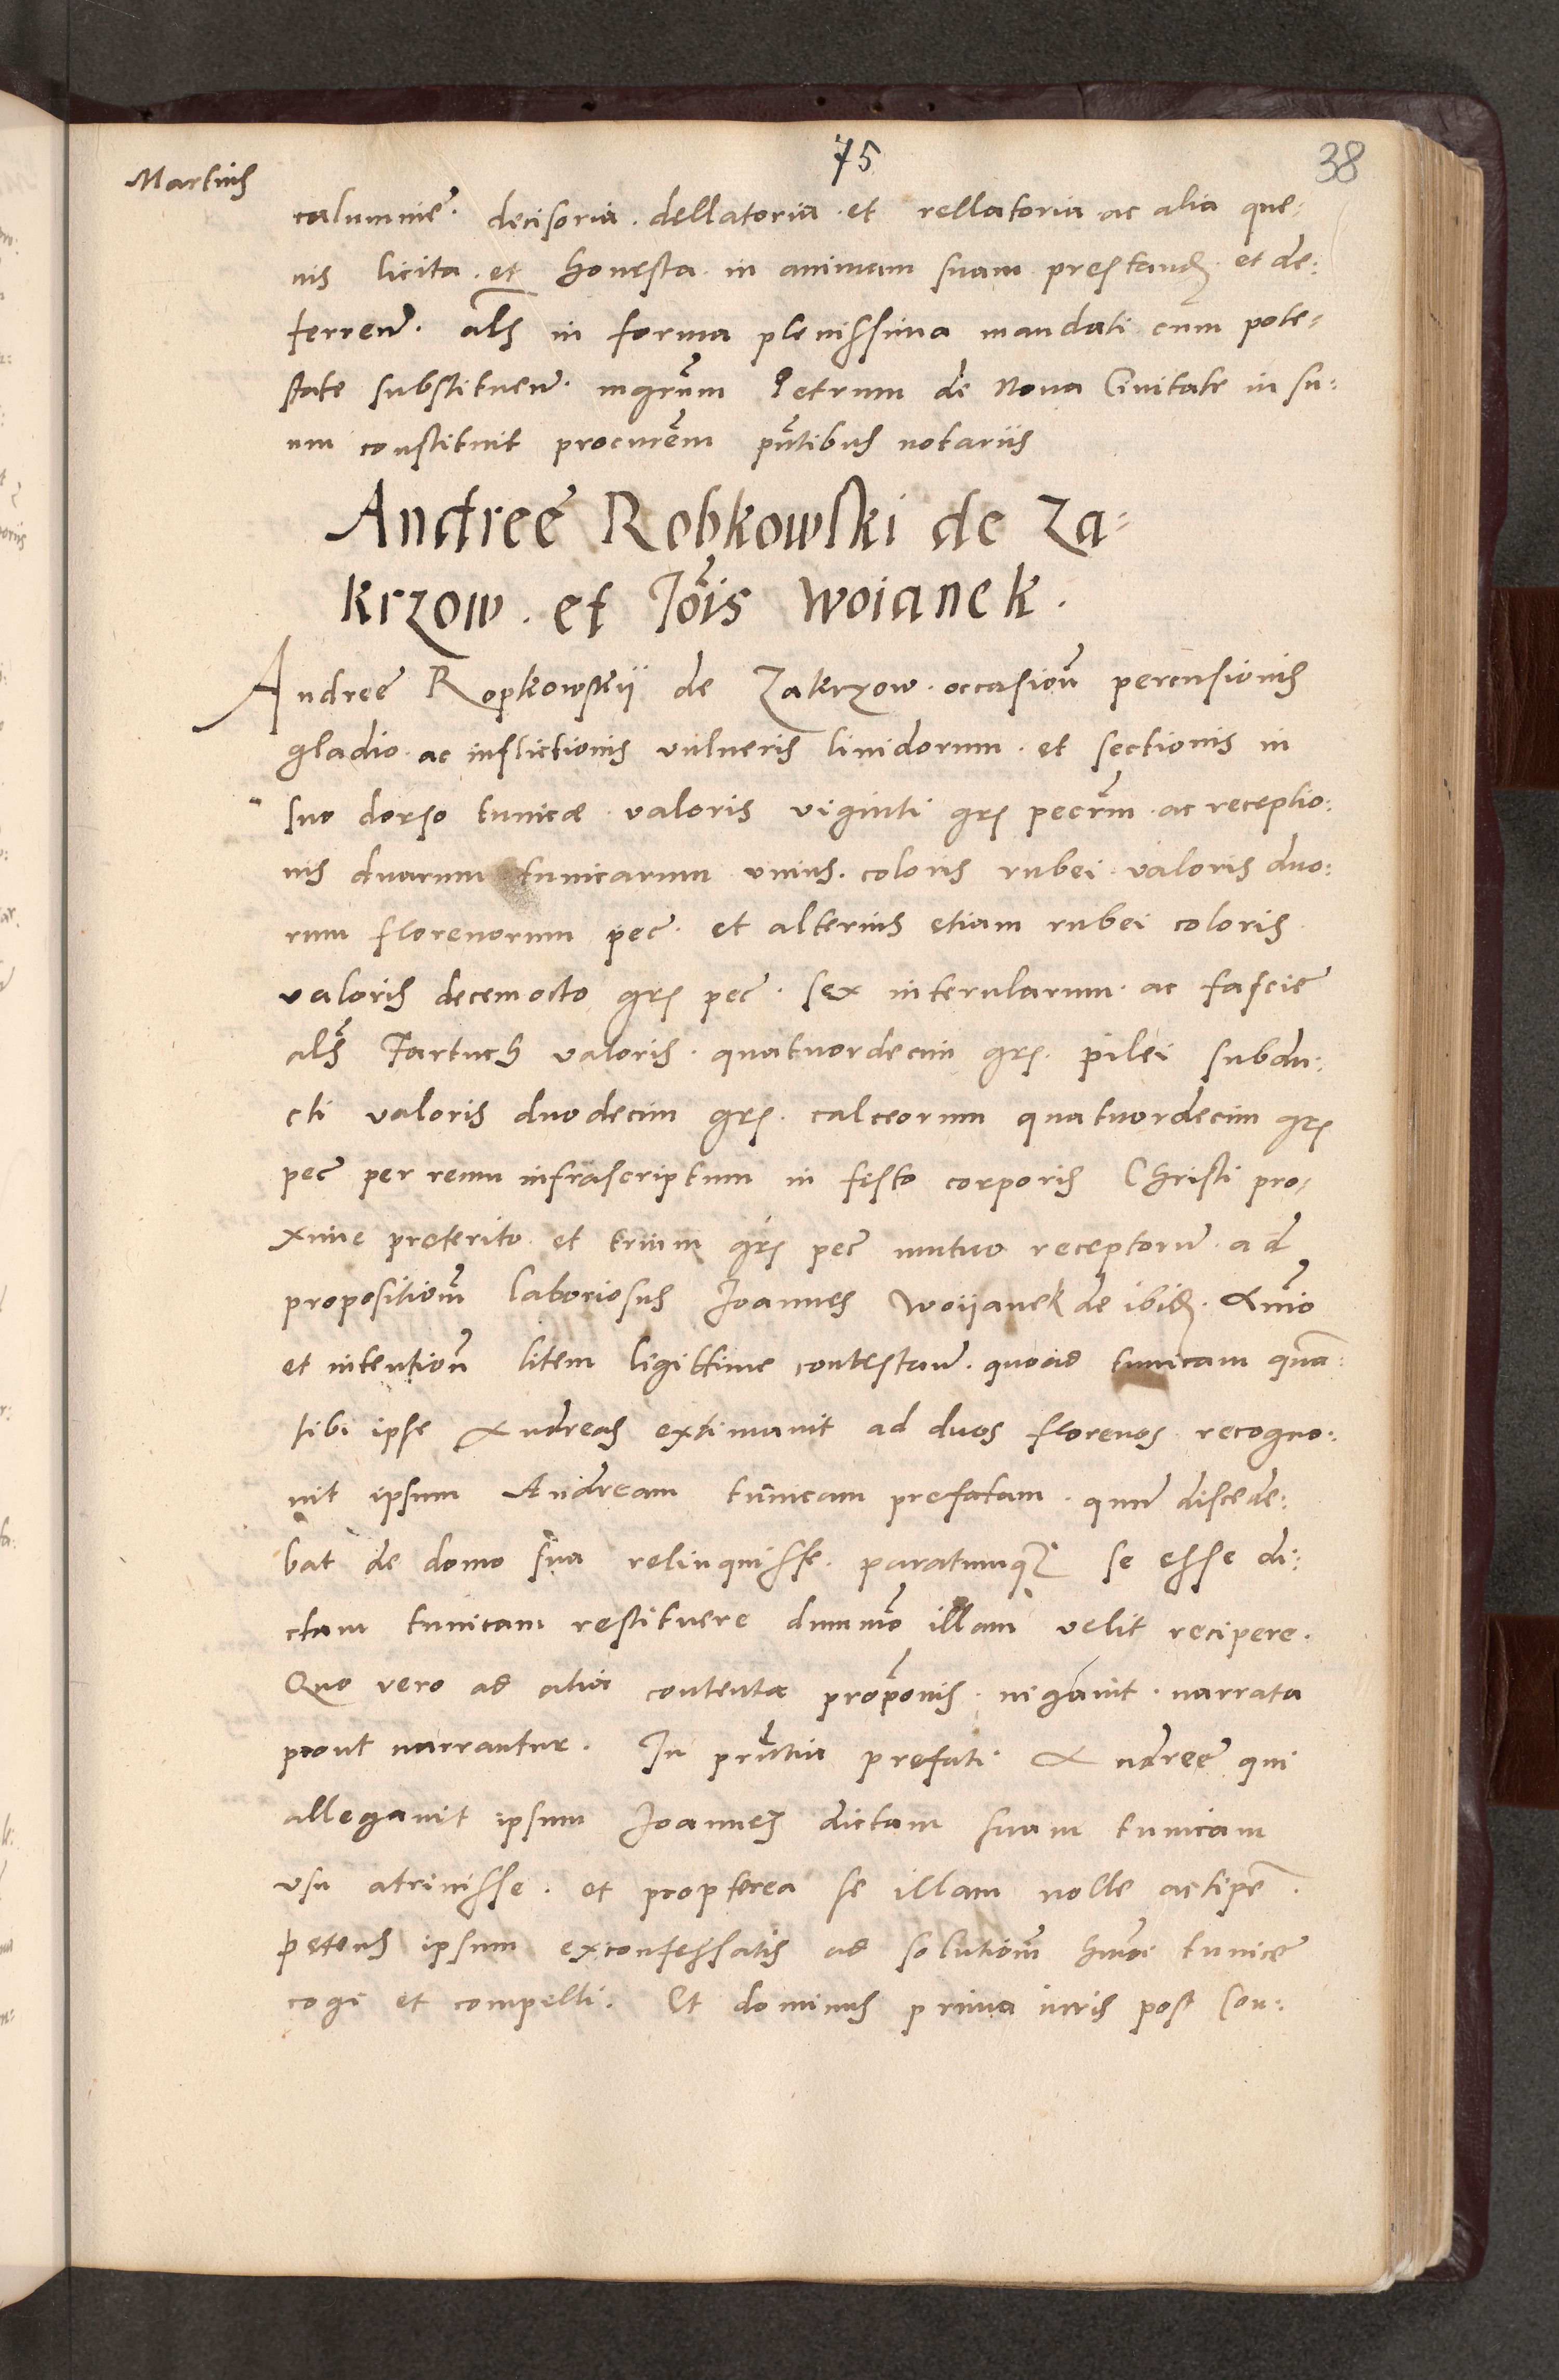 75
38
Martius
calumnie. decisoria. dellatoria. et rellatoria ac alia que:
nis licita. et honesta in animam suam prestand. et de:
ferren. als in forma plenissima mandati cum pote=
state substituen. mgrum Petrum de Noua Ciuitate in su:
um constituit procurem pntibus notariis
Andree Robkowski de Za=
krzow. et Jois Woianek.
Andree Ropkowskij de Zakrzow. occasion percusionis
gladio. ac inflictionis vulneris liuidorum. et sectionis in
suo dorso tunicæ. valoris viginti grs pecrm. ac receptio:
nis duarum tunicarum vnius. coloris rubei valoris duo:
rum florenorum pec. et alterius etiam rubei coloris
valoris decemocto grs pec. sex interularum. ac fascie
als Fartuch valoris. quatuordecim grs. pilei subdu:
cti valoris duodecim grs. calceorum quatuordecim grs
pec per reum infrascriptum in festo corporis Christi pro=
xime preterito et trium grs pec mutuo receptorum. ad
propositiom laboriosus Joannes Woijanek de ibid. Animo
et intention litem ligittime contestan. quoad tunicam quam
sibi ipse Andreas extimauit ad duos florenos recogno:
uit ipsum Andream tunicam prefatam. quum discede:
bat de domo sua relinquisse. paratumq se esse di:
ctam tunicam restituere dummo illam velit recipere.
Quo vero ad alia contenta proponis. negauit. narrata
prout narrantur. In pntia prefati Andree qui
allegauit ipsum Joannes dictam suam tunicam
vsu atriuisse. et propterea se illam nolle accipe.
petens ipsum exconfessatis ad solutiom hmoi tunice
cogi et compelli. Et dominus prima iuris post Con: